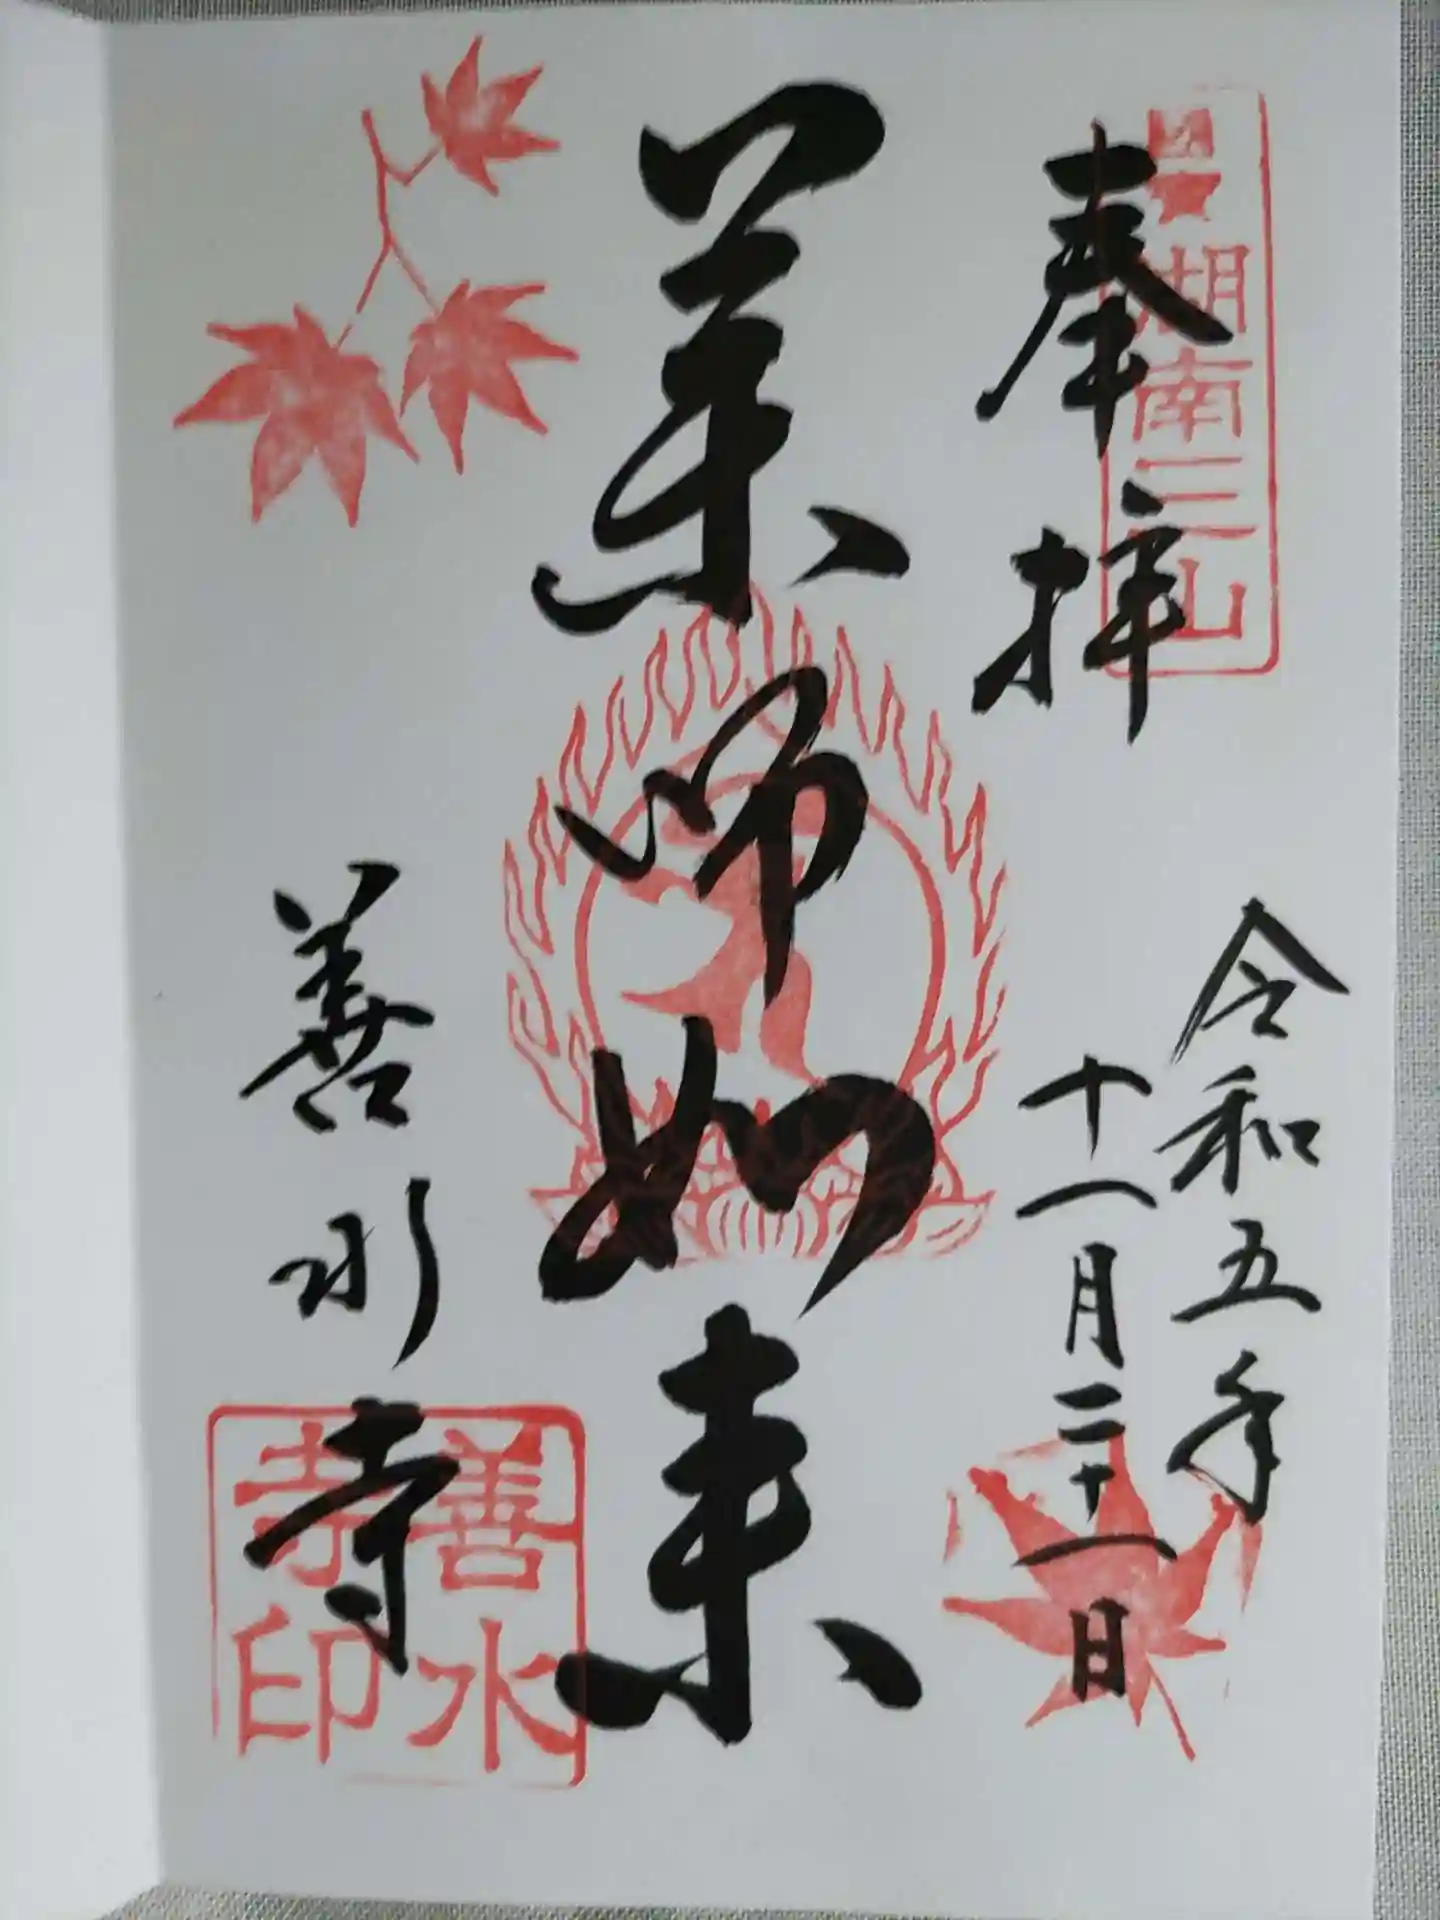 奉拝
湖南三山
令和五年
十一月二十一日
薬師如来
善水寺
善水寺印